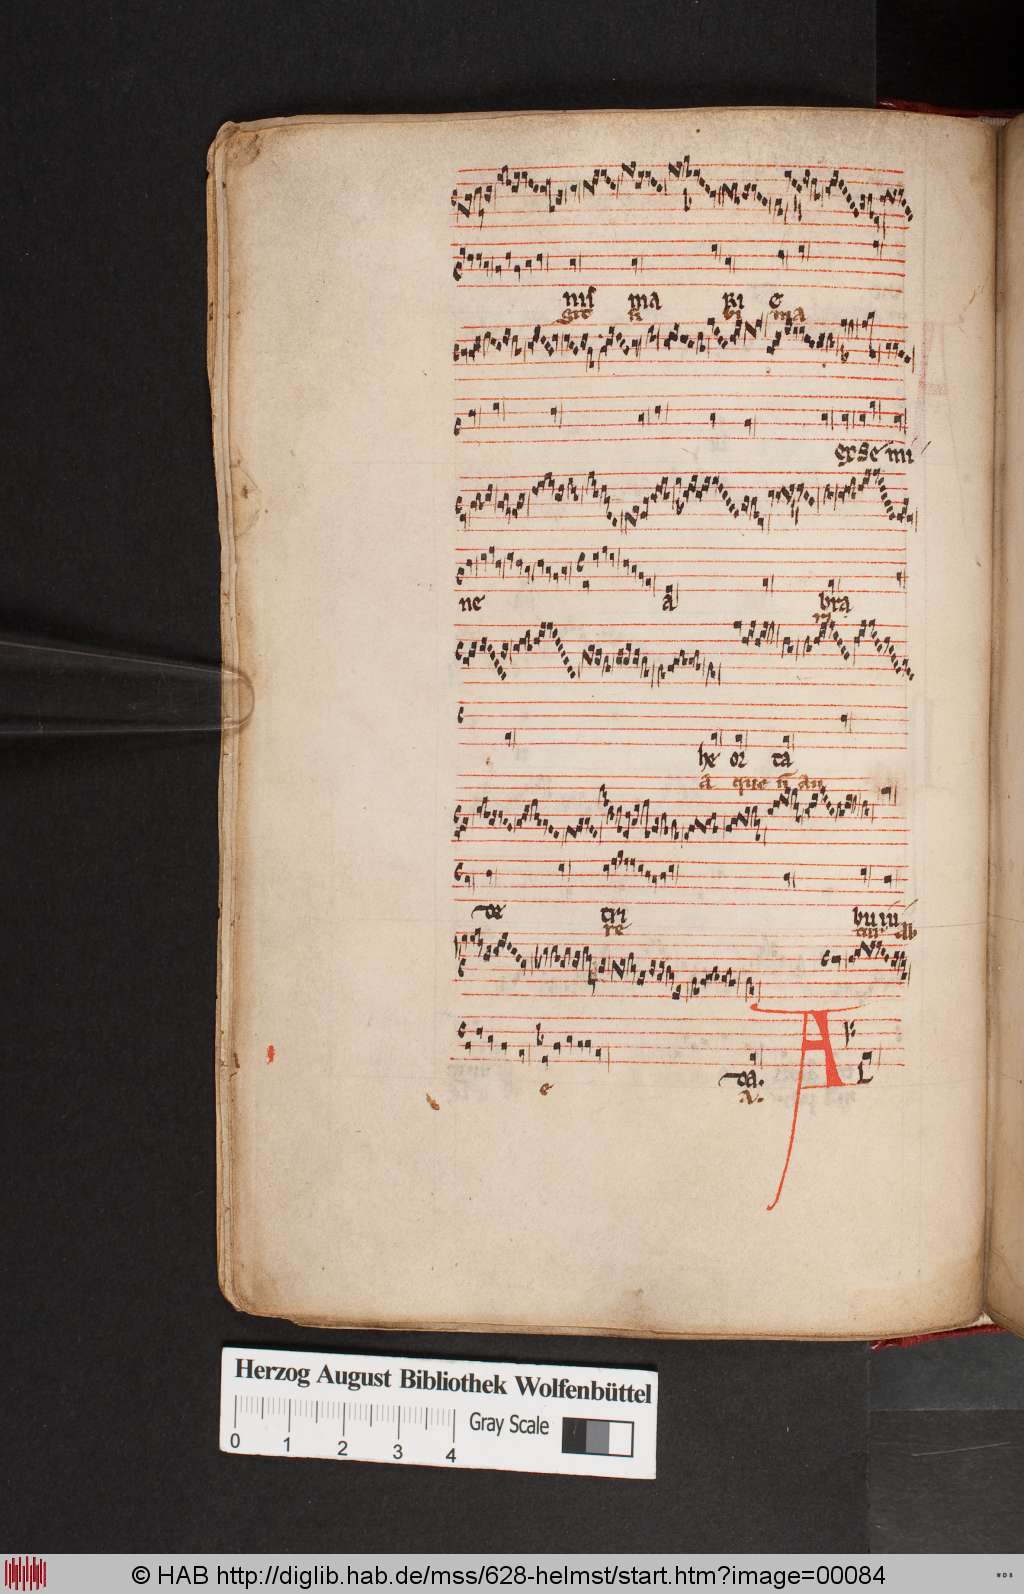 nis ma Ri e
git ri bi ma
ex se mi
ne a bra
he or ta
a que n̄ an
de tri bu iu
re
e da.
a.
A L
Herzog August Bibliothek Wolfenbüttel
Gray Scale
0 1 2 3 4
© HAB http://diglib.hab.de/mss/628-helmst/start.htm?image=00084